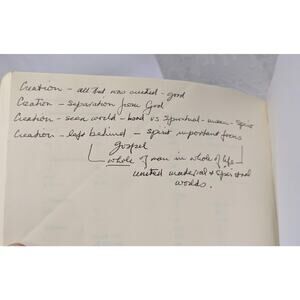 Creation - all that was created - good
Creation - separation from God
Creation - seen world - hand vs spiritual - unseen - spirit
Creation - left behind - spirit important focus
gospel
whole of man in whole of life
united material & spiritual
worlds.